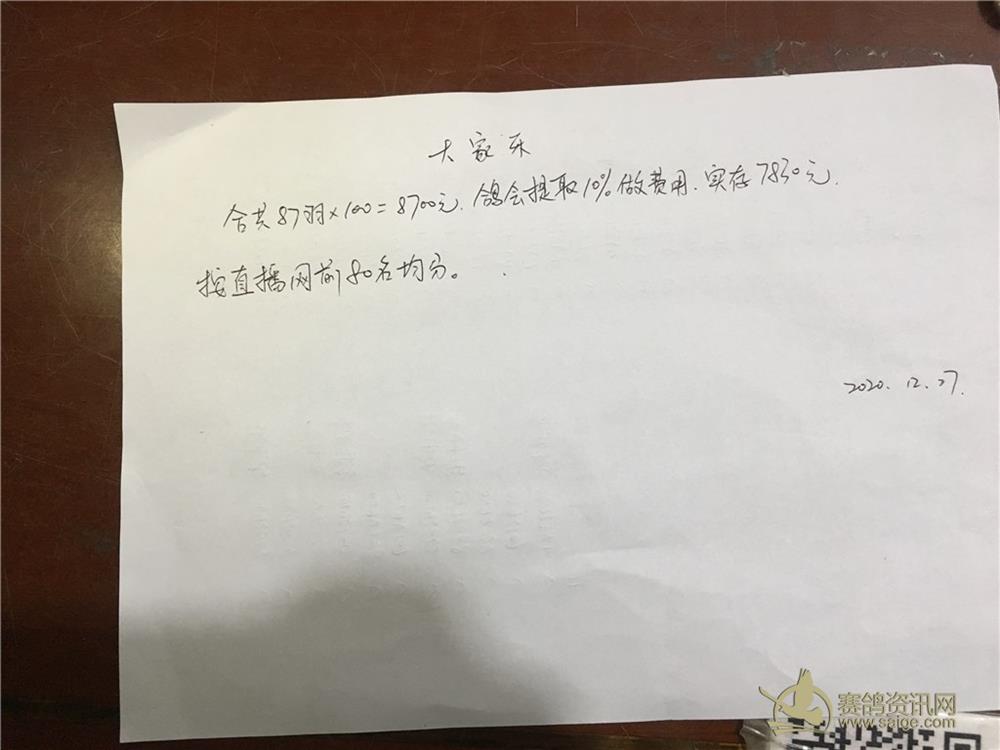 大家乐
合共87羽×100=8700元.鸽会提取10%做费用.实存7830元.
按直播网前80名均分。
2020.12.27.
赛鸽资讯网
www.saige.com